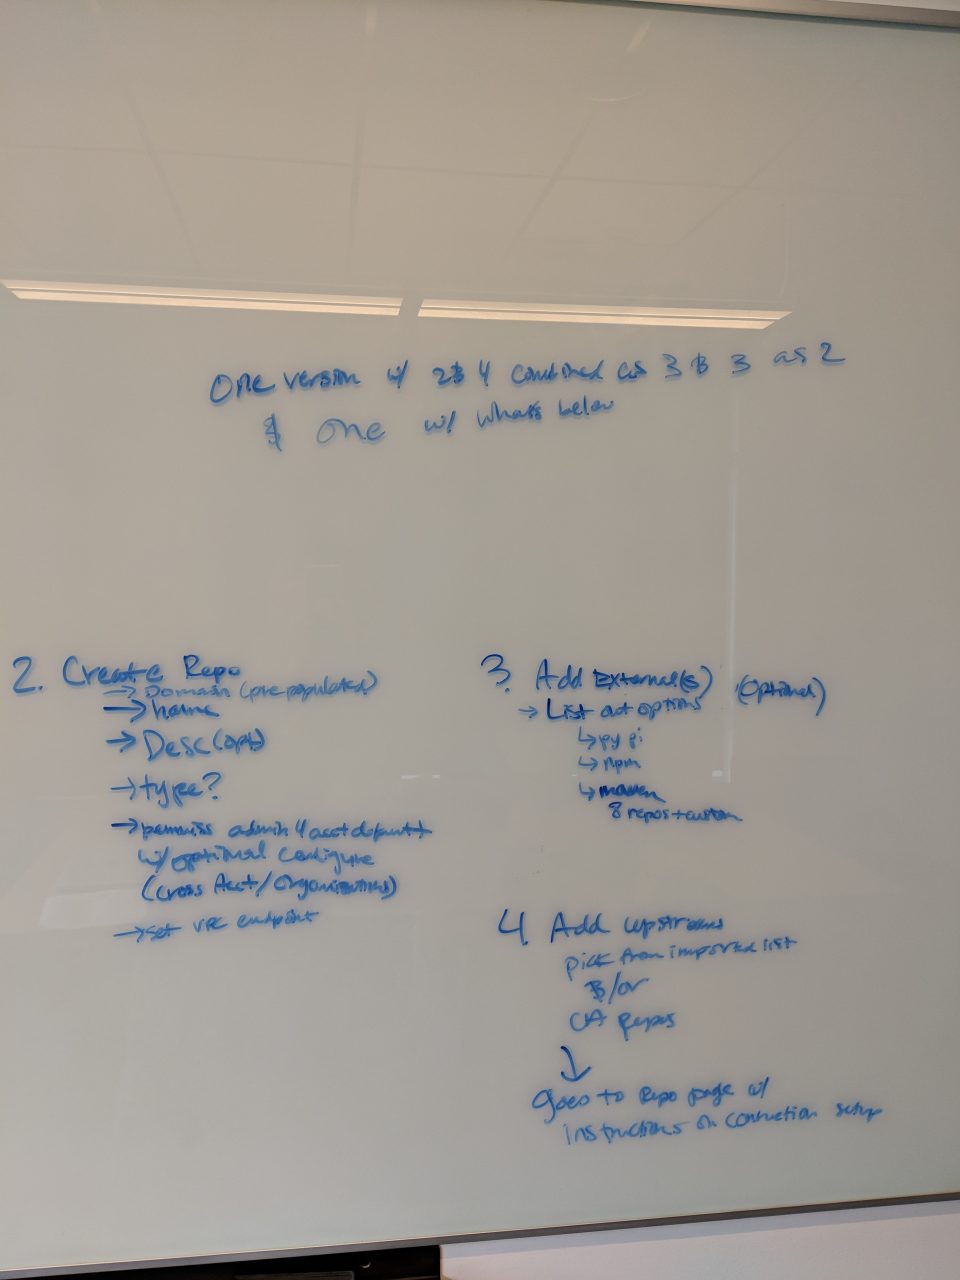 One version w/ 2 & 4 combined as 3 & 3 as 2
& one w/ whats below
2. Create Repo
→ Domain (prepopulated)
→ name
→ Desc (opt)
→ type?
→ permiss admin 4 acct default
w/ optional configure
(cross Acct/organizations)
→ set VPC endpoint
3. Add External(s) (optional)
→ List out options
↳ py pi
↳ npm
↳ maven
8 repos + custom
4. Add upstreams
pick from imported list
&/or
CA Repos
↓
goes to Repo page w/
instructions on connection setup